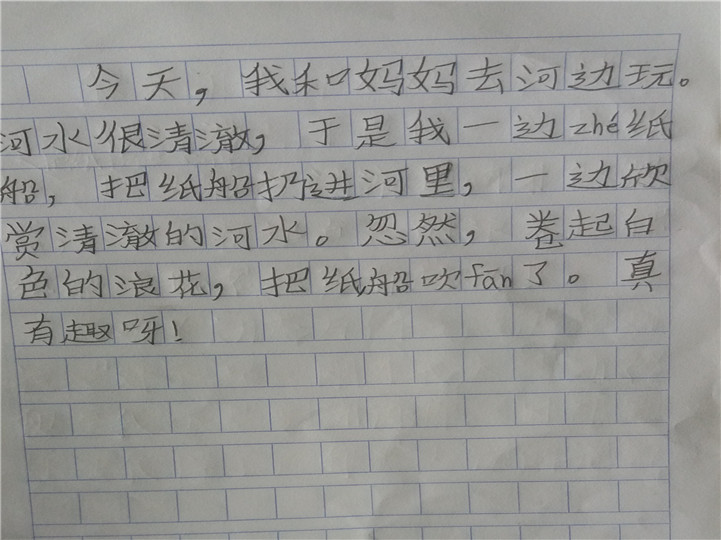 今天，我和妈妈去河边玩。
河水很清澈，于是我一边zhé纸
船，把纸船扔进河里，一边欣
赏清澈的河水。忽然，卷起白
色的浪花，把纸船吹fān了。真
有趣呀！